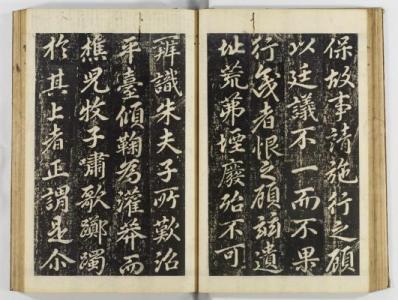 保故事請施行之願
以廷議不一而不果
行者恨之顧茲遺
址荒茀堙廢殆不可
辨識朱夫子所歎治
平臺傾鞠為灌莽而
樵兒牧子嘯歌躑躅
於其上者正謂是尒